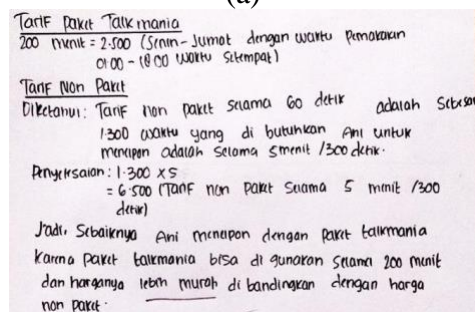 (a)
Tarif Paket Talkmania
200 menit = 2.500 (Senin - Jumat dengan waktu Pemakaian
01.00 - 18.00 waktu setempat)
Tarif Non Paket
Diketahui : Tarif non paket selama 60 detik adalah sebesar
1.300 waktu yang di butuhkan Ani untuk
menelpon adalah selama 5 menit / 300 detik.
Penyelesaian : 1.300 x 5
= 6.500 (Tarif non Paket Selama 5 menit / 300
detik)
Jadi, Sebaiknya Ani menelpon dengan paket talkmania
karena paket talkmania bisa di gunakan selama 200 menit
dan harganya lebih murah di bandingkan dengan harga
non paket.